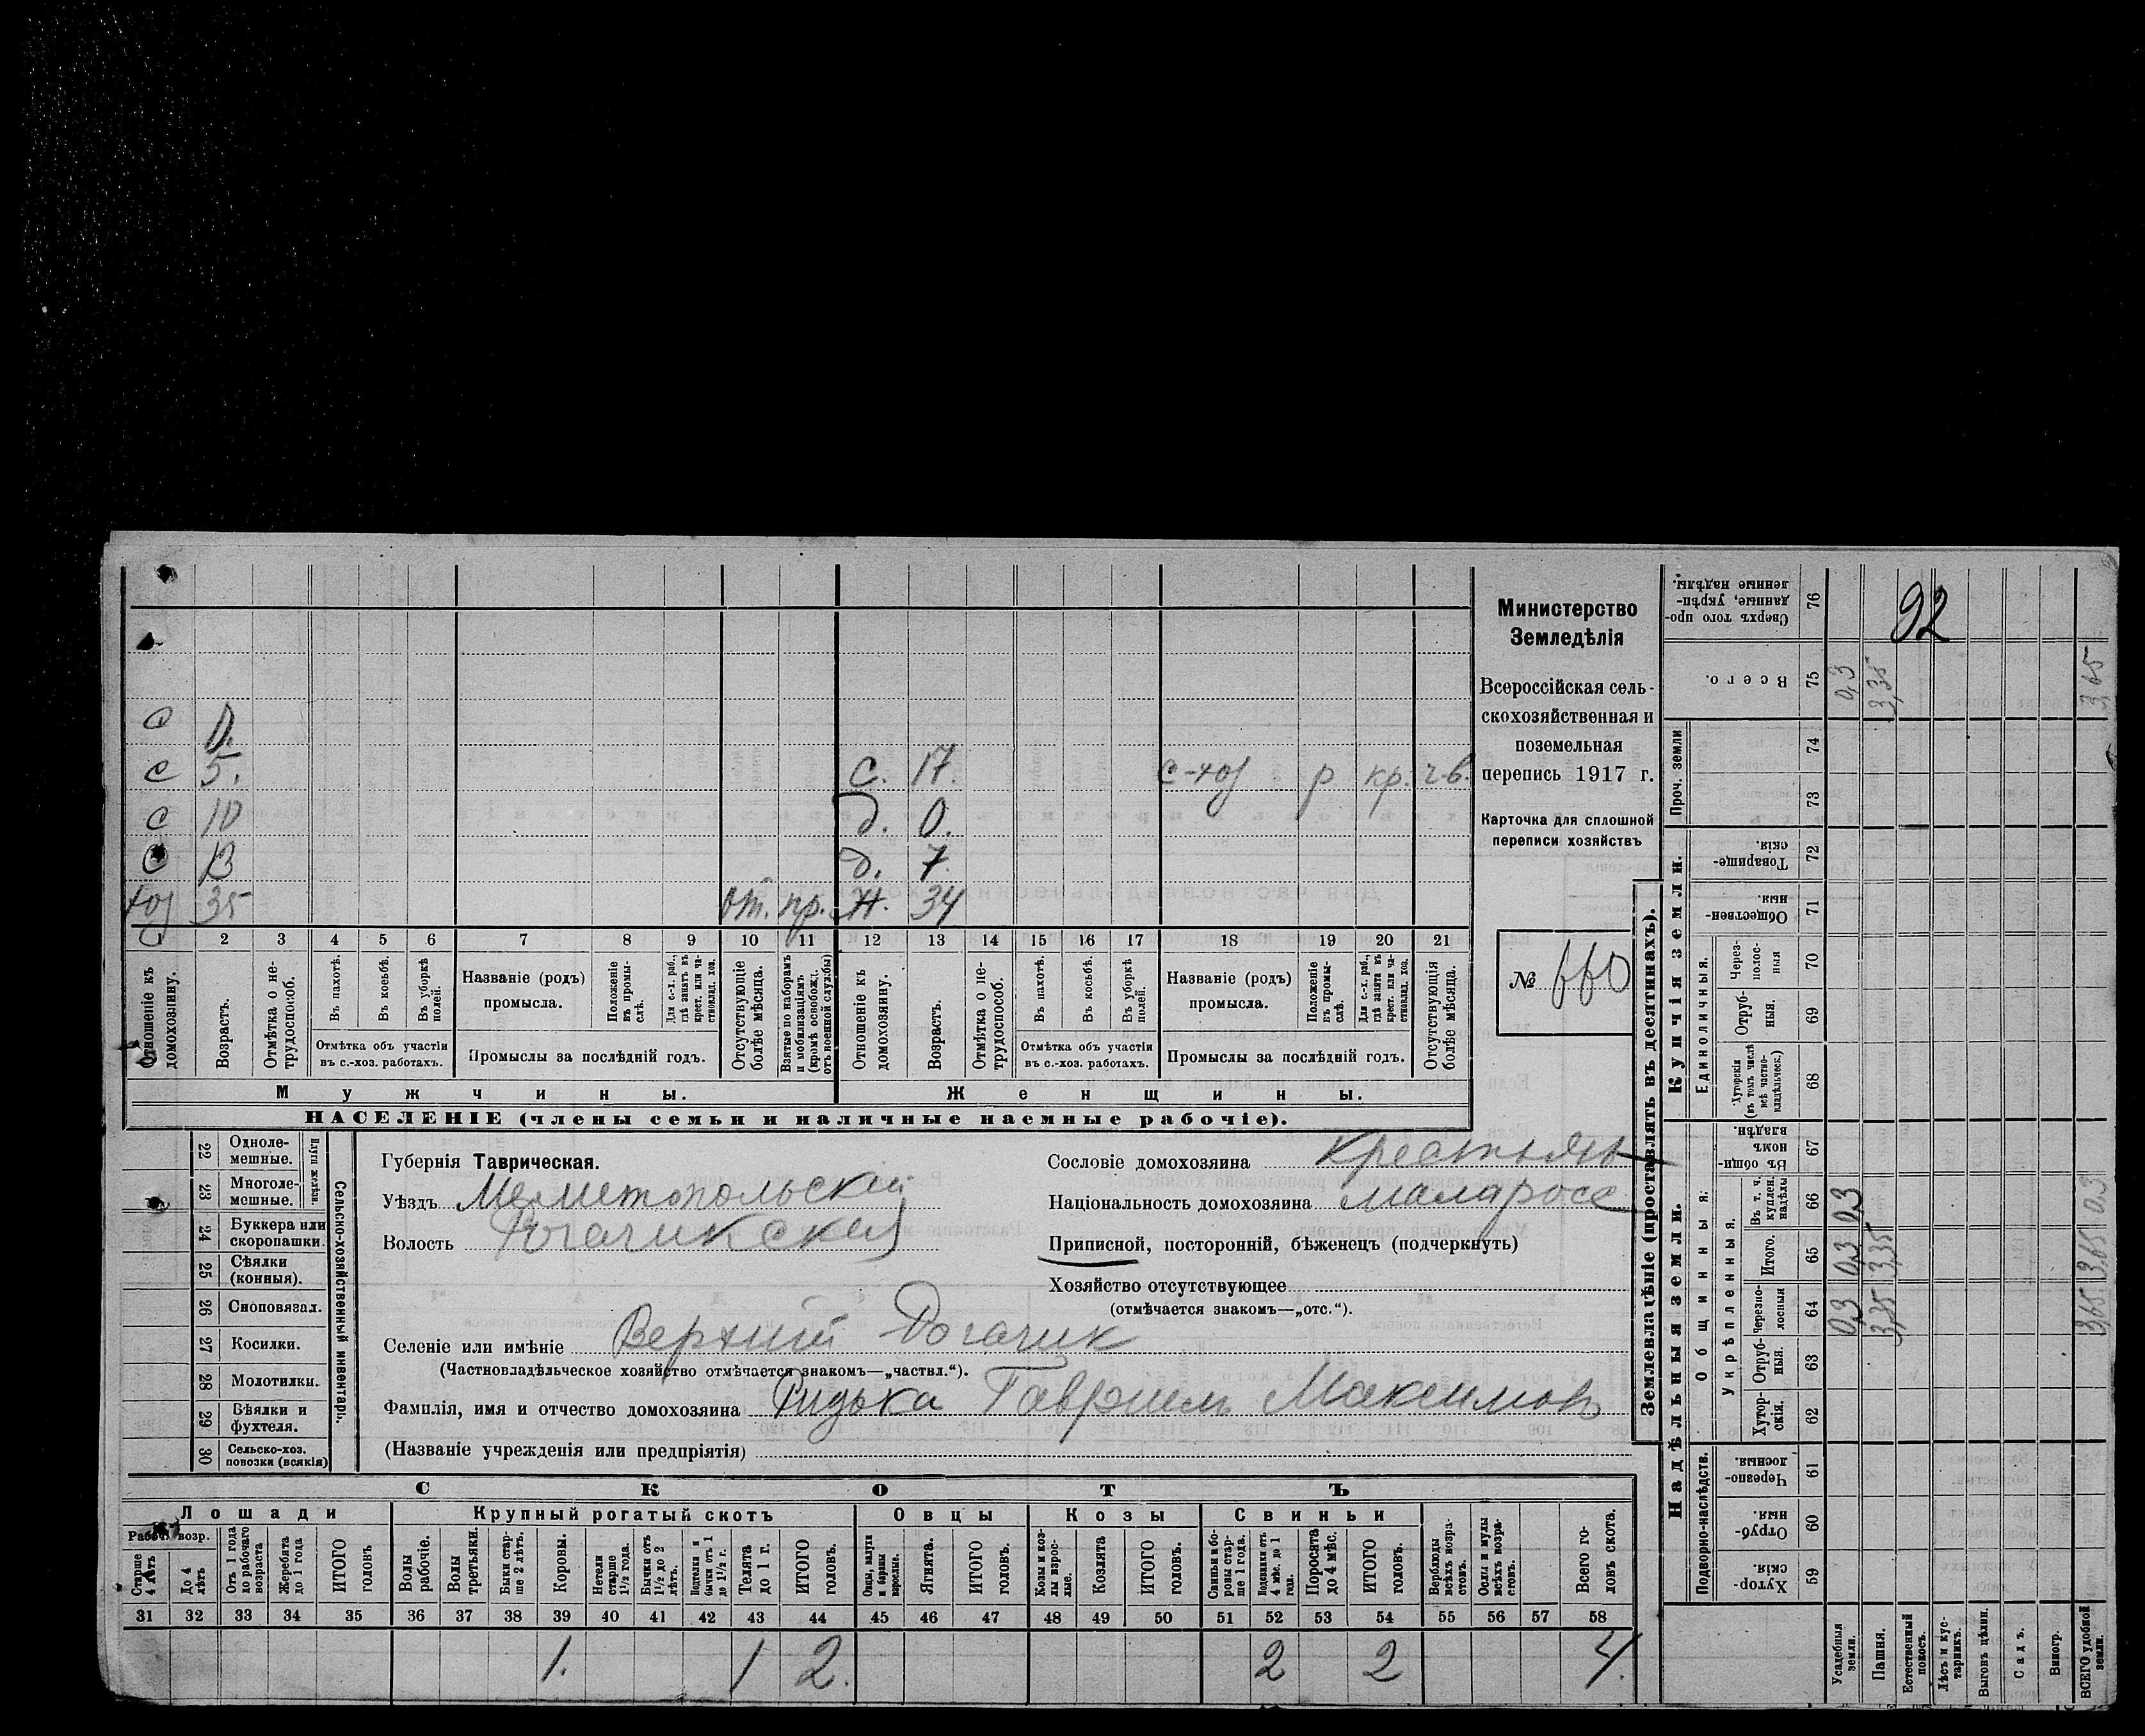 с 0.
с 5. с. 17. с-хоз р кр. г-в.
с 10 д. 0.
с 13 д. 7
хоз 35 от. пр. ж. 34
1 2 3 4 5 6 7 8 9 10 11 12 13 14 15 16 17 18 19 20 21
Отношеніе къ домохозяину.
Возрастъ.
Отмѣтка о не-трудоспособ.
Въ пахотѣ.
Въ косьбѣ.
Въ уборкѣ полей.
Отмѣтка объ участіи въ с.-хоз. работахъ.
Названіе (родъ) промысла.
Положеніе въ промы-слѣ.
Для с.-х. раб., гдѣ занятъ въ крест. или ча-стновлад. хоз.
Промыслы за послѣдній годъ.
Отсутствующіе болѣе мѣсяца.
Взятые по наборамъ и мобилизаціямъ (кромѣ освобожд. отъ военной службы)
Отношеніе къ домохозяину.
Возрастъ.
Отмѣтка о не-трудоспособ.
Въ пахотѣ.
Въ косьбѣ.
Въ уборкѣ полей.
Отмѣтка объ участіи въ с.-хоз. работахъ.
Названіе (родъ) промысла.
Положеніе въ промы-слѣ.
Для с.-х. раб., гдѣ занята въ крест. или ча-стновлад. хоз.
Промыслы за послѣдній годъ.
Отсутствующія болѣе мѣсяца.
Мужчины.
Женщины.
НАСЕЛЕНІЕ (члены семьи и наличные наемные рабочіе).
Министерство
Земледѣлія
Всероссійская сель-
скохозяйственная и
поземельная
перепись 1917 г.
Карточка для сплошной
переписи хозяйствъ
№ 660
22 Одноле-мешные.
23 Многоле-мешные.
Плуги желѣзн.
24 Буккера или скоропашки.
25 Сѣялки (конныя).
26 Сноповязал.
27 Косилки.
28 Молотилки.
29 Вѣялки и фухтеля.
30 Сельско-хоз. повозки (всякія)
Сельско-хозяйственный инвентарь.
Губернія Таврическая.
Уѣздъ Мелитопольскій
Волость Рогачикская
Сословіе домохозяина Крестьян
Національность домохозяина малоросс
Приписной, посторонній, бѣженецъ (подчеркнуть)
Хозяйство отсутствующее
(отмѣчается знакомъ—„отс.“).
Селеніе или имѣніе Верхній Рогачик
(Частновладѣльческое хозяйство отмѣчается знакомъ—„частвл.“).
Фамилія, имя и отчество домохозяина Ридька Гавриил Максимов
(Названіе учрежденія или предпріятія)
СКОТЪ
Лошади
Крупный рогатый скотъ
Овцы
Козы
Свиньи
Рабоч. возр.
Старше 4 лѣтъ
До 4 лѣтъ
Отъ 1 года до рабочаго возраста
Жеребята до 1 года
ИТОГО головъ
Волы рабочіе.
Волы третьяки.
Быки стар-ше 2 лѣтъ.
Коровы.
Нетели старше 1½ года.
Бычки отъ 1½ до 2 лѣтъ.
Подтелки и бычки отъ 1 до 1½ г.
Телята до 1 г.
ИТОГО головъ.
Овцы, валухи и бараны взрослые.
Ягнята.
ИТОГО головъ.
Козы и коз-лы взрос-лые.
Козлята
ИТОГО головъ.
Свиньи и бо-ровы стар-ше 1 года.
Подсвинки отъ 4 мѣс. до 1 года.
Поросята до 4 мѣс.
ИТОГО головъ.
Верблюды всѣхъ возра-стовъ.
Ослы и мулы всѣхъ возра-стовъ.
Всего го-ловъ скота.
31 32 33 34 35 36 37 38 39 40 41 42 43 44 45 46 47 48 49 50 51 52 53 54 55 56 57 58
1. 1 2. 2 2 4.
Землевладѣніе (проставлять въ десятинахъ).
Надѣльныя земли.
Купчія земли.
Проч. земли
Подворно-наслѣдств.
Общинныя.
Укрѣпленныя.
Единоличныя.
Хутор-скія. 59
Отруб-ныя. 60
Черезпо-лосныя. 61
Хутор-скія. 62
Отруб-ныя. 63
Черезпо-лосныя 64
Итого. 65
Въ т. ч. куплен. надѣлы 66
Въ общи-номъ владѣн. 67
Хуторскія (въ томъ числѣ всѣ частно-владѣльческ.) 68
Отруб-ныя. 69
Через-полос-ныя 70
Обществен-ныя. 71
Товарище-скія. 72
73
74
Всего. 75
Сверхъ того про-данные, укрѣп-ленные надѣлы. 76
92
Усадебныя земли. 0,3 0,3 0,3 0,3
Пашня. 3,35 3,35 3,35
Естественный покосъ.
Лѣсъ и кус-тарникъ.
Выгонъ цѣлин.
Садъ.
Виногр.
ВСЕГО удобной земли. 3,65 3,65 0,3 3,65